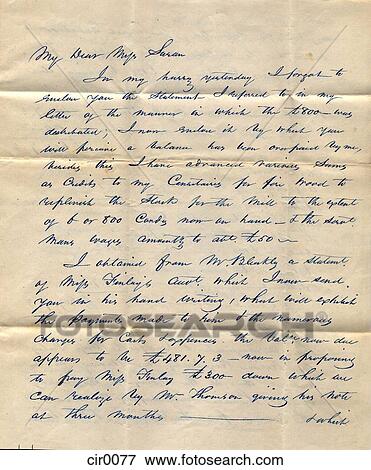 My Dear Miss Sarah
In my hurry yesterday I forgot to
enclose you the Statement I referred to in my
letter of the manner in which the £800 was
distributed, I now enclose it by which you
will perceive a balance has been overpaid by me,
besides this I have advanced various Sums
as Credits to my for fire wood to
replenish the Stock for the Mill to the extent
of 6 or 800 Cords now on hand & the
Mans wages amounts to abt. £50
I obtained from Mr. a Statemt.
of Miss Finlay's Acct. which I now send
you in his hand writing, which will exhibit
the payments made to him & the numerous
charges for Costs & expences the balce now due
appears to be £481.7.3 now in proposing
to pay Miss Finlay £300 down which we
can realize by Mr. Thomson giving his Note
at three months
& which
Fotosearch
cir0077 www.fotosearch.com